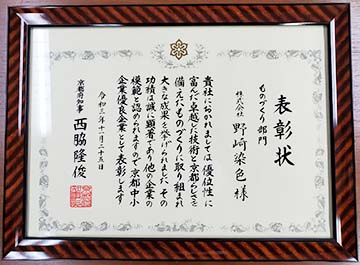 表彰状
ものづくり部門
株式会社 野崎染色様
貴社におかれましては優位性に
富んだ卓越した技術と京都らしさを
備えたものづくりに取り組まれ
大きな成果を挙げられました その
功績は誠に顕著であり他の企業の
模範と認められますので京都中小
企業優良企業として表彰します
令和三年十一月二十五日
京都府知事 西脇隆俊